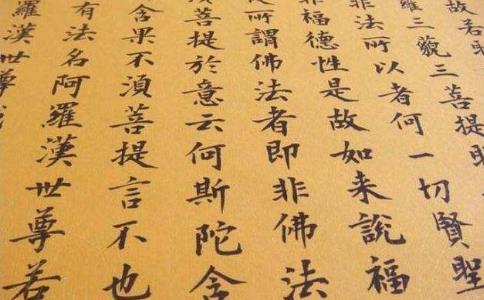 故若
羅三藐三菩提
非法所以者何一切賢聖
非福德性是故如来說福
所謂佛法者即非佛法
菩提於意云何斯陀含
含果不須菩提言不也
有法名阿羅漢世尊若
羅漢世尊